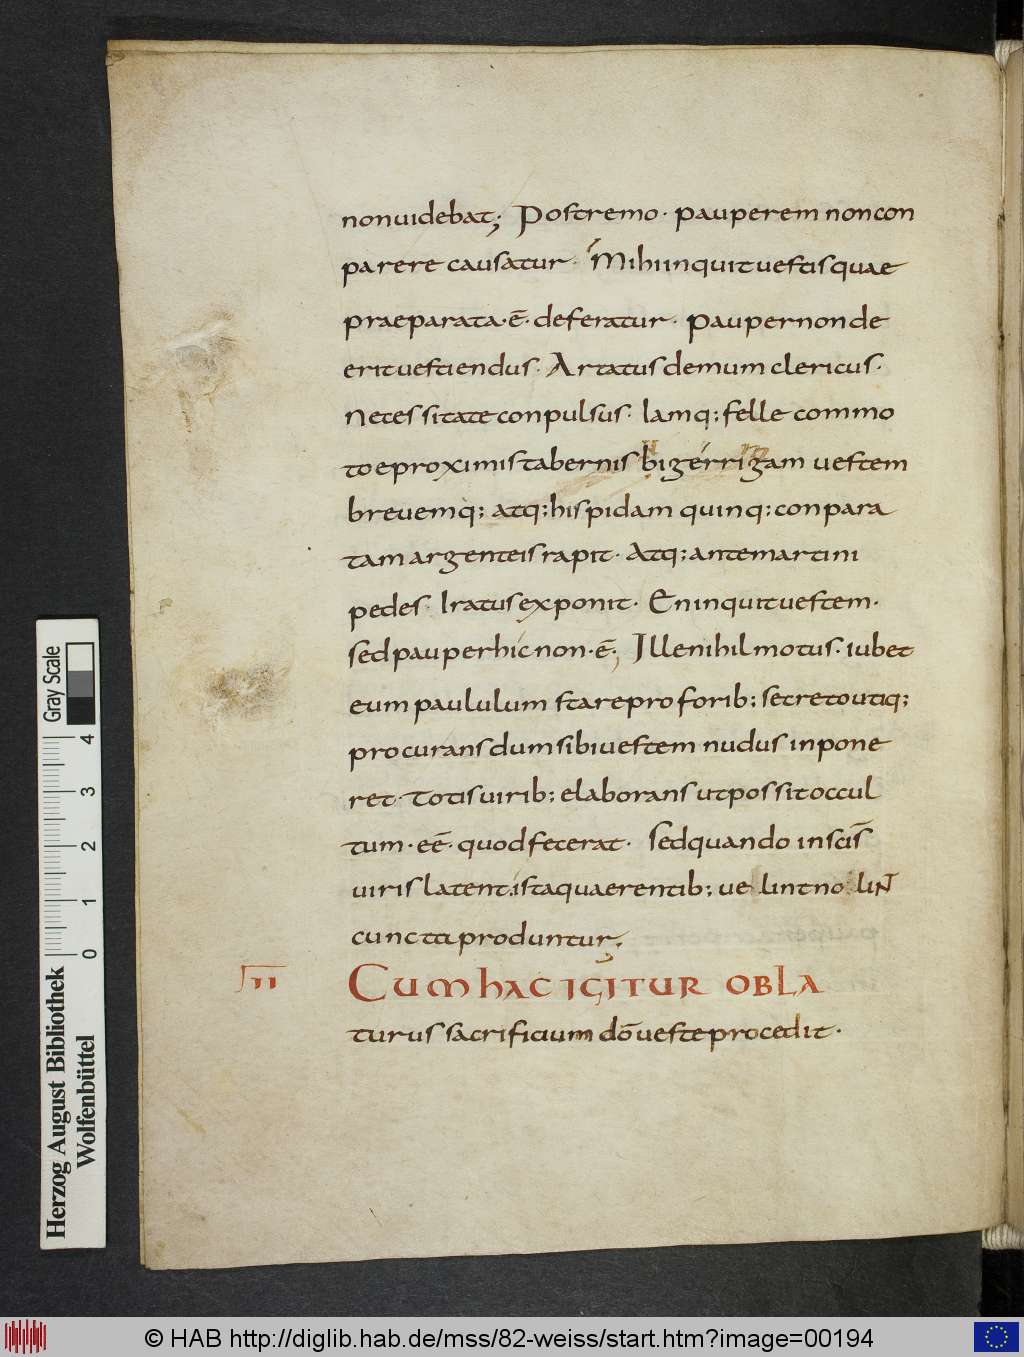 nonuidebat; Postremo · pauperem noncon
parere causatur · Mihi inquit uestis quae
praeparata · ē · deferatur · pauper non de
erit uestiendus · Artatus demum clericus ·
Necessitate conpulsus · Iamq; felle commo
to e proximis tabernis bigerrigam uestem
breuemq; atq; hispidam quinq; conpara
tam argenteis rapit · Atq; ante martini
pedes · Iratus exponit · En inquit uestem ·
sed pauper hic non · ē; Ille nihil motus · iubet
eum paululum stare pro forib; secreto utiq;
procurans dum sibi uestem nudus inpone
ret · Totis uirib; elaborans ut possit occul
tum · eē · quod fecerat · Sed quando in scīs
uiris latent ista quaerentib; ue lint no lint
cuncta produntur;
III CUM HAC IGITUR OBLA
turus sacrificium dō ueste procedit ·
Gray Scale
0 1 2 3 4
Herzog August Bibliothek
Wolfenbüttel
© HAB http://diglib.hab.de/mss/82-weiss/start.htm?image=00194